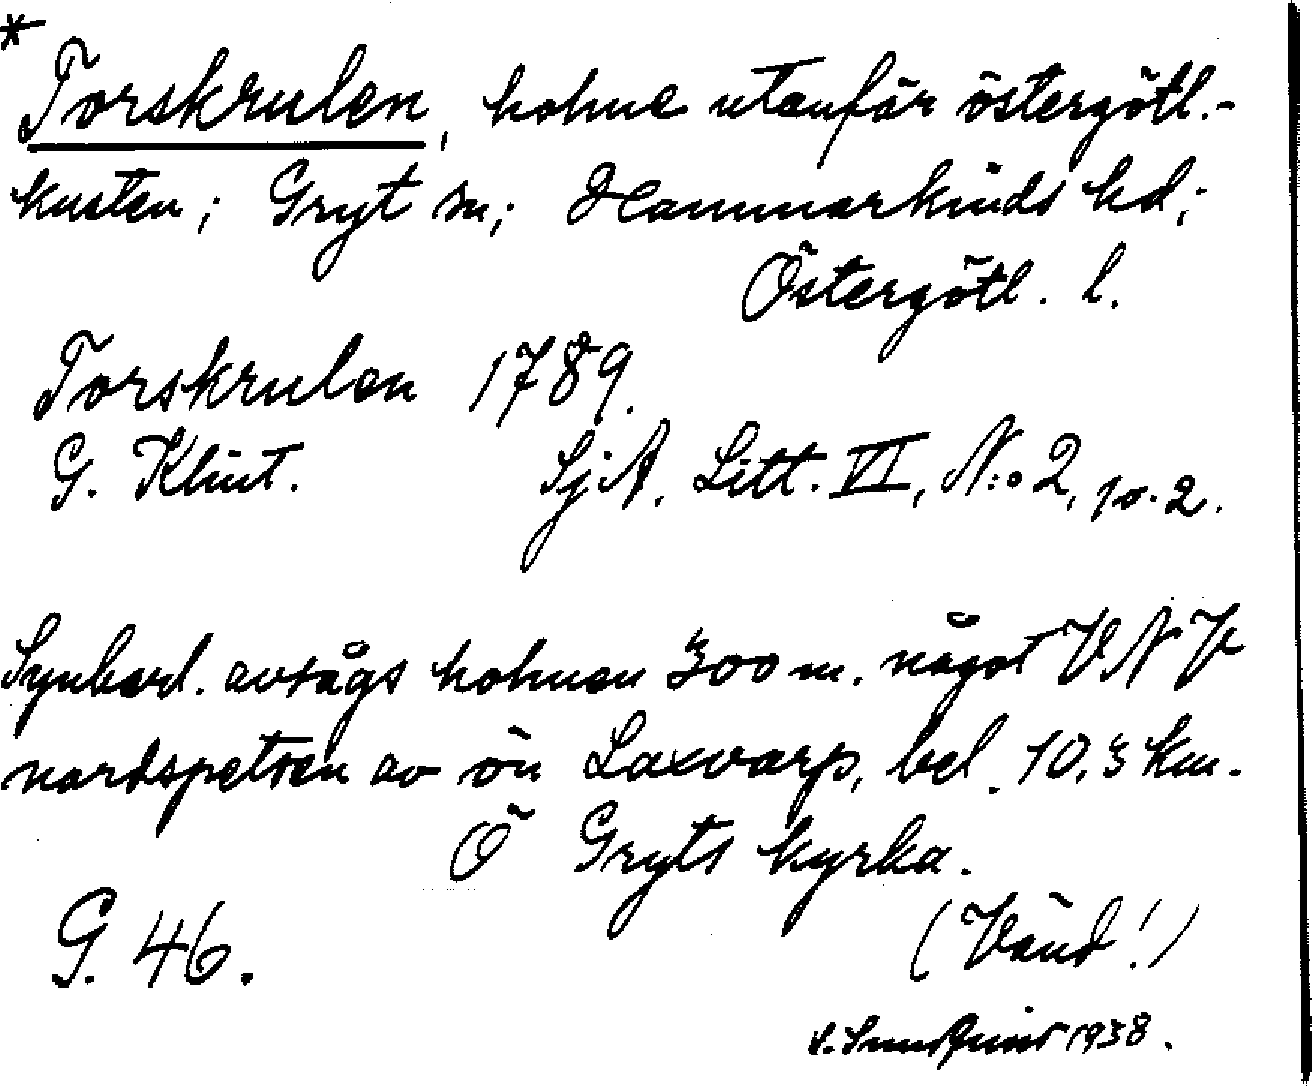 *
Torskrulen, holme utanför östergötl.-
kusten; Gryt sn; Hammarkinds hd;
Östergötl. l.
Torskrulen 1789.
G. Klint. SjA. Litt. VI, N:o 2, 10.2.
Synbarl. avsågs holmen 300 m. något VNV
nordspetsen av ön Laxvarp, bel. 10,3 km.
Ö Gryts kyrka.
G. 46. (Vänd!)
1938.